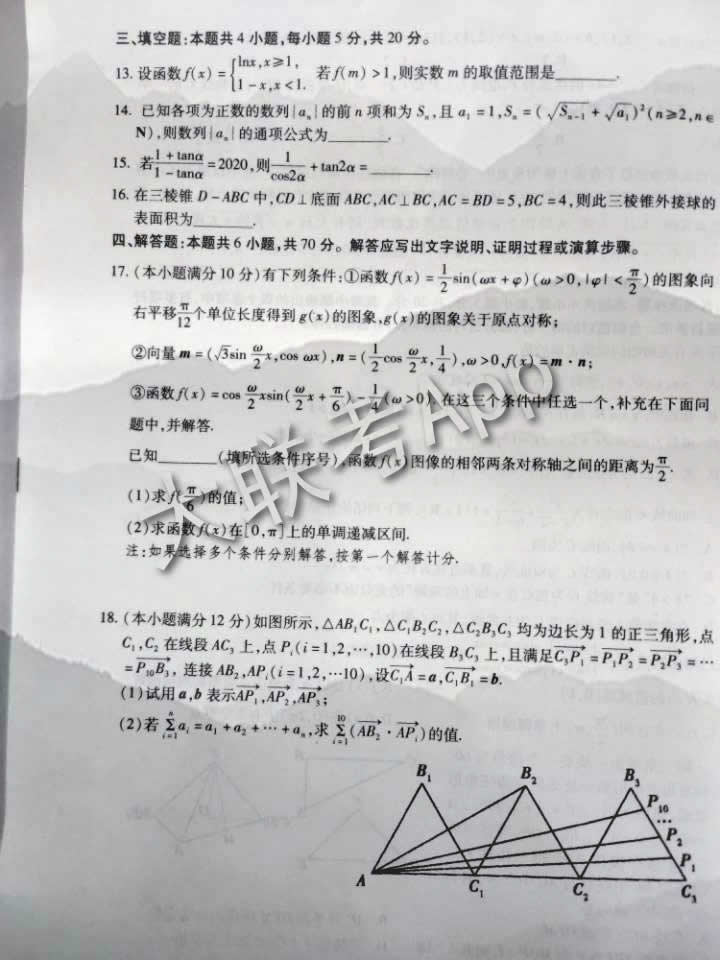 三、填空题:本题共4小题,每小题5分,共20分。
13. 设函数f(x)={lnx,x≥1, 1-x,x<1. 若f(m)>1,则实数m的取值范围是________.
14. 已知各项为正数的数列{aₙ}的前n项和为Sₙ,且a₁=1,Sₙ=(√Sₙ₋₁+√a₁)²(n≥2,n∈
N),则数列{aₙ}的通项公式为________.
15. 若(1+tanα)/(1-tanα)=2020,则1/cos2α+tan2α=________.
16. 在三棱锥D-ABC中,CD⊥底面ABC,AC⊥BC,AC=BD=5,BC=4,则此三棱锥外接球的
表面积为________.
四、解答题:本题共6小题,共70分。解答应写出文字说明、证明过程或演算步骤。
17. (本小题满分10分)有下列条件:①函数f(x)=1/2 sin(ωx+φ)(ω>0,|φ|<π/2)的图象向
右平移π/12个单位长度得到g(x)的图象,g(x)的图象关于原点对称;
②向量m=(√3sin ω/2 x,cos ωx),n=(1/2 cos ω/2 x,1/4),ω>0,f(x)=m·n;
③函数f(x)=cos ω/2 xsin(ω/2 x+π/6)-1/4(ω>0). 在这三个条件中任选一个,补充在下面问
题中,并解答.
已知________(填所选条件序号),函数f(x)图像的相邻两条对称轴之间的距离为π/2.
(1)求f(π/6)的值;
(2)求函数f(x)在[0,π]上的单调递减区间.
注:如果选择多个条件分别解答,按第一个解答计分.
大联考App
18. (本小题满分12分)如图所示,△AB₁C₁,△C₁B₂C₂,△C₂B₃C₃均为边长为1的正三角形,点
C₁,C₂在线段AC₃上,点Pᵢ(i=1,2,…,10)在线段B₃C₃上,且满足C₃P₁=P₁P₂=P₂P₃=…
=P₁₀B₃,连接AB₂,APᵢ(i=1,2,…10),设C₁A=a,C₁B₁=b.
(1)试用a,b表示AP₁,AP₂,AP₃;
(2)若 n Σ i=1 aᵢ=a₁+a₂+…+aₙ,求 10 Σ i=1 (AB₂·APᵢ)的值.
B₁ B₂ B₃
P₁₀
…
P₂
P₁
A C₁ C₂ C₃